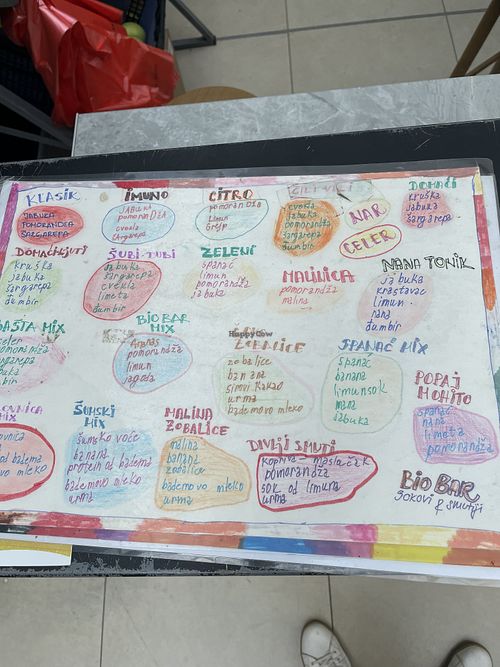 KLASIK
JABUKA
POMORANDŽA
ŠARGAREPA
IMUNO
JABUKA
pomoranDŽA
cvekla
šargarepa
CITRO
pomoranDŽA
Limun
Grejp
cvekla
jabuka
pomorandža
šargarepa
đumbir
NAR
CELER
DOMAĆI
kruška
jabuka
šargarepa
DOMAĆI ŽUTI
kruška
jabuka
šargarepa
đumbir
ŠUBI-TUBI
jabuka
šargarepa
cvekla
limeta
đumbir
ZELENI
spanać
limun
pomorandža
jabuka
MALILICA
pomorandža
malina
NANA TONIK
jabuka
krastavac
limun
nana
đumbir
BAŠTA MIX
celer
pomorandža
šargarepa
jabuka
đumbir
BIO BAR
MIX
Ananas
pomorandža
limun
jagoda
HappyCow
ZOBALICE
zobalice
banana
sirovi kakao
urma
bademovo mleko
SPANAĆ MIX
spanać
banana
limun sok
nana
jabuka
POPAJ
MOHITO
spanać
nana
limeta
pomorandža
ŠUMSKI
MIX
šumsko voće
banana
protein od badema
bademovo mleko
urma
MALINA
ZOBALICE
malina
banana
zobalice
bademovo mleko
urma
DIVLJI SMUTI
kopriva - maslačak
pomorandža
sok od limuna
urma
BIO BAR
Sokovi & smutiji